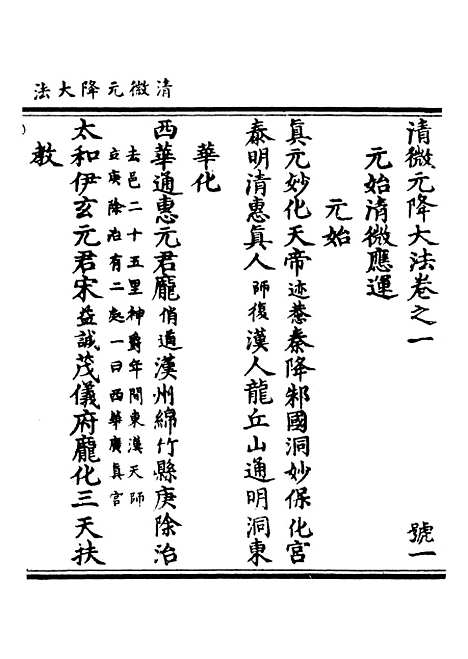 清微元降大法
清微元降大法卷之一 號一
元始清微應運
元始
眞元妙化天帝迹䓤秦降邾國洞妙保化宮
泰明清惠眞人師復漢人龍丘山通明洞東
華化
西華通惠元君龐俏過漢州綿竹縣庚除治
去邑二十五里神爵年間東漢天師
立庚除治有二處一曰西華廣眞宮
太和伊玄元君宋益誠茂儀府龐化三天扶
教